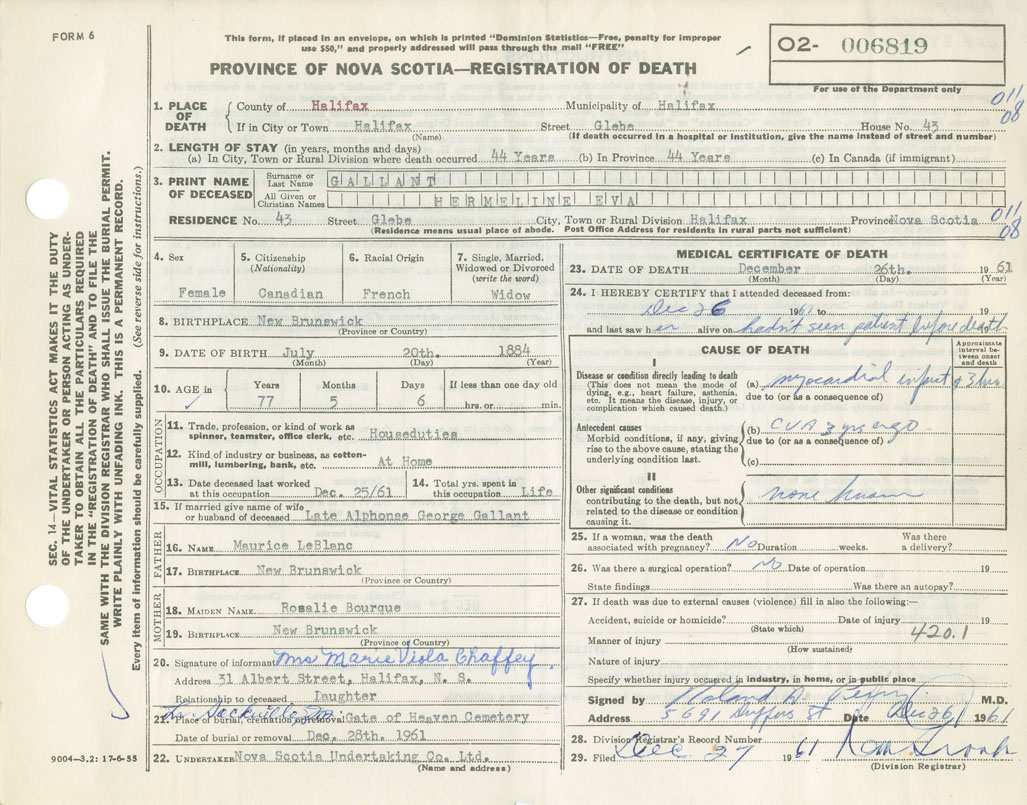 FORM 6
This form, if placed in an envelope, on which is printed "Dominion Statistics—Free, penalty for improper
use $50," and properly addressed will pass through the mail "FREE"
02- 006819
PROVINCE OF NOVA SCOTIA—REGISTRATION OF DEATH
For use of the Department only
1. PLACE OF DEATH
County of Halifax Municipality of Halifax
011
08
If in City or Town Halifax Street Glebe House No. 43
(Name) (If death occurred in a hospital or institution, give the name instead of street and number)
2. LENGTH OF STAY (in years, months and days)
(a) In City, Town or Rural Division where death occurred 44 Years (b) In Province 44 Years (c) In Canada (if immigrant)
3. PRINT NAME OF DECEASED
Surname or Last Name GALLANT
All Given or Christian Names HERMELINE EVA
RESIDENCE No. 43 Street Glebe City, Town or Rural Division Halifax Province Nova Scotia
011
08
(Residence means usual place of abode. Post Office Address for residents in rural parts not sufficient)
4. Sex
Female
5. Citizenship
(Nationality)
Canadian
6. Racial Origin
French
7. Single, Married,
Widowed or Divorced
(write the word)
Widow
8. BIRTHPLACE New Brunswick
(Province or Country)
9. DATE OF BIRTH July 20th. 1884
(Month) (Day) (Year)
10. AGE in
Years Months Days If less than one day old
77 5 6 hrs. or min.
OCCUPATION
11. Trade, profession, or kind of work as
spinner, teamster, office clerk, etc. Houseduties
12. Kind of industry or business, as cotton-
mill, lumbering, bank, etc. At Home
13. Date deceased last worked
at this occupation Dec. 25/61
14. Total yrs. spent in
this occupation Life
15. If married give name of wife
or husband of deceased Late Alphonse George Gallant
FATHER
16. NAME Maurice LeBlanc
17. BIRTHPLACE New Brunswick
(Province or Country)
MOTHER
18. MAIDEN NAME Rosalie Bourque
19. BIRTHPLACE New Brunswick
(Province or Country)
20. Signature of informant Mrs Marie Viola Chaffey.
Address 31 Albert Street, Halifax, N. S.
Relationship to deceased Daughter
21. Place of burial, cremation or removal Gate of Heaven Cemetery
Sackville
Date of burial or removal Dec. 28th. 1961
22. UNDERTAKER Nova Scotia Undertaking Co. Ltd.
(Name and address)
MEDICAL CERTIFICATE OF DEATH
23. DATE OF DEATH December 26th. 1961
(Month) (Day) (Year)
24. I HEREBY CERTIFY that I attended deceased from:
Dec 26 1961 to 19
and last saw her alive on hadn't seen patient before death 19
CAUSE OF DEATH
Approximate
interval be-
tween onset
and death
I
Disease or condition directly leading to death
(This does not mean the mode of
dying, e.g., heart failure, asthenia,
etc. It means the disease, injury, or
complication which caused death.)
(a) myocardial infarct 3 hrs.
due to (or as a consequence of)
Antecedent causes
Morbid conditions, if any, giving
rise to the above cause, stating the
underlying condition last.
(b) CVA 3 yrs ago
due to (or as a consequence of)
(c)
II
Other significant conditions
contributing to the death, but not
related to the disease or condition
causing it.
none known
25. If a woman, was the death
associated with pregnancy? No Duration weeks. Was there
a delivery?
26. Was there a surgical operation? No Date of operation 19
State findings Was there an autopsy?
27. If death was due to external causes (violence) fill in also the following:—
Accident, suicide or homicide? Date of injury 19
(State which)
420.1
Manner of injury
(How sustained)
Nature of injury
Specify whether injury occurred in industry, in home, or in public place
Signed by Roland A. Perry M.D.
Address 5691 Duffus St Date Dec 26 1961
28. Division Registrar's Record Number
29. Filed Dec 27 1961
(Division Registrar)
SEC. 14—VITAL STATISTICS ACT MAKES IT THE DUTY
OF THE UNDERTAKER OR PERSON ACTING AS UNDER-
TAKER TO OBTAIN ALL THE PARTICULARS REQUIRED
IN THE "REGISTRATION OF DEATH" AND TO FILE THE
SAME WITH THE DIVISION REGISTRAR WHO SHALL ISSUE THE BURIAL PERMIT.
WRITE PLAINLY WITH UNFADING INK. THIS IS A PERMANENT RECORD.
Every item of information should be carefully supplied. (See reverse side for instructions.)
9004—3.2: 17-6-55